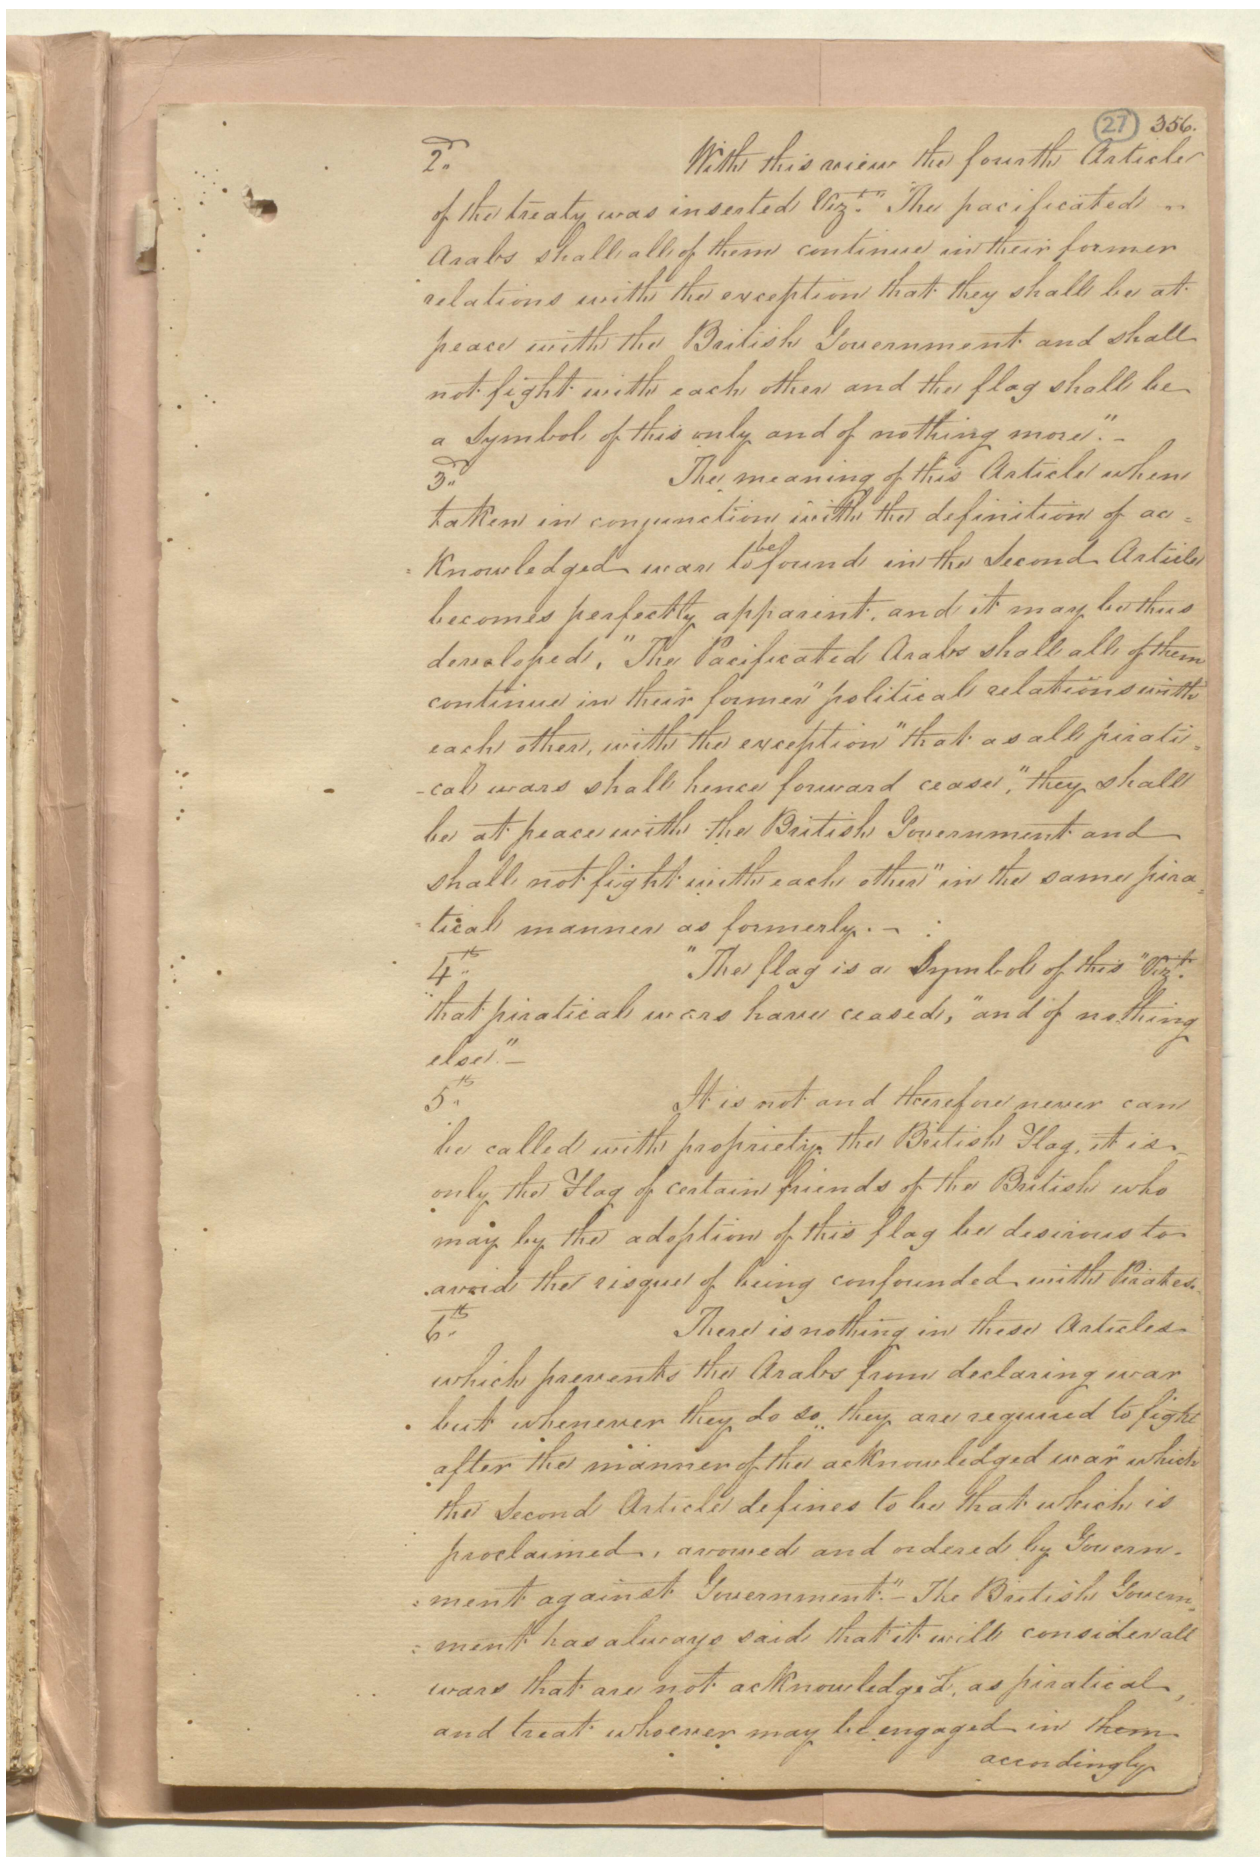 27 356.
2d. With this view the fourth Article
of the treaty was inserted Vizt. "The pacificated
Arabs shall all of them continue in their former
relations with the exception that they shall be at
peace with the British Government and shall
not fight with each other and the flag shall be
a Symbol of this only and of nothing more." -
3d. The meaning of this Article when
taken in conjunction with the definition of ac=
=knowledged war to be found in the Second Article
becomes perfectly apparent, and it may be thus
developed, "The Pacificated Arabs shall all of them
continue in their former" political relations with
each other, with the exception "that as all pirati=
-cal wars shall hence forward cease", they shall
be at peace with the British Government and
shall not fight with each other" in the same pira=
=tical manner as formerly. -
4th. "The flag is a Symbol of this" Vizt.
that piratical wars have ceased, "and of nothing
else" -
5th. It is not and therefore never can
be called with propriety the British Flag, it is
only the Flag of certain friends of the British who
may by the adoption of this flag be desirous to
avoid the risque of being confounded with Pirates.
6th. There is nothing in these Articles
which prevents the Arabs from declaring war
but whenever they do so, they are required to fight
after the manner of the acknowledged war which
the Second Article defines to be "that which is
proclaimed, avowed and ordered by Govern-
=ment against Government." - The British Govern=
=ment has always said that it will consider all
wars that are not acknowledged, as piratical,
and treat whoever may be engaged in them
accordingly